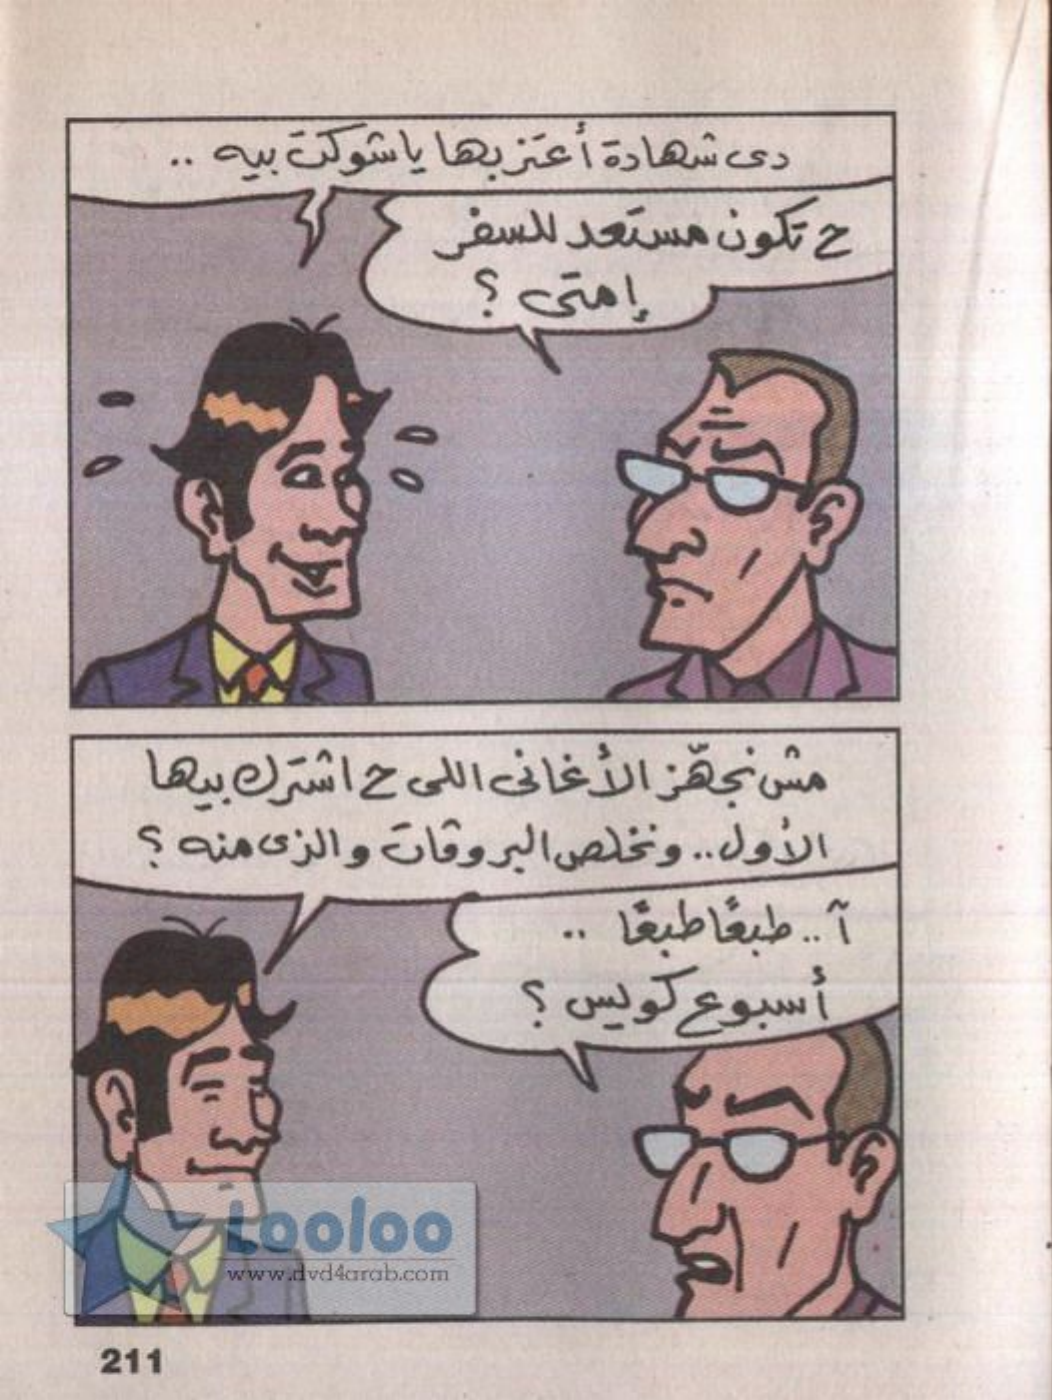 دى شهادة أعتز بها يا شوكت بيه ..
ح تكون مستعد للسفر
إمتى ؟
مش نجهّز الأغانى اللى ح اشترك بيها
الأول .. ونخلص البروڤات والذى منه ؟
آ .. طبعًا طبعًا ..
أسبوع كويس ؟
Looloo
www.dvd4arab.com
211